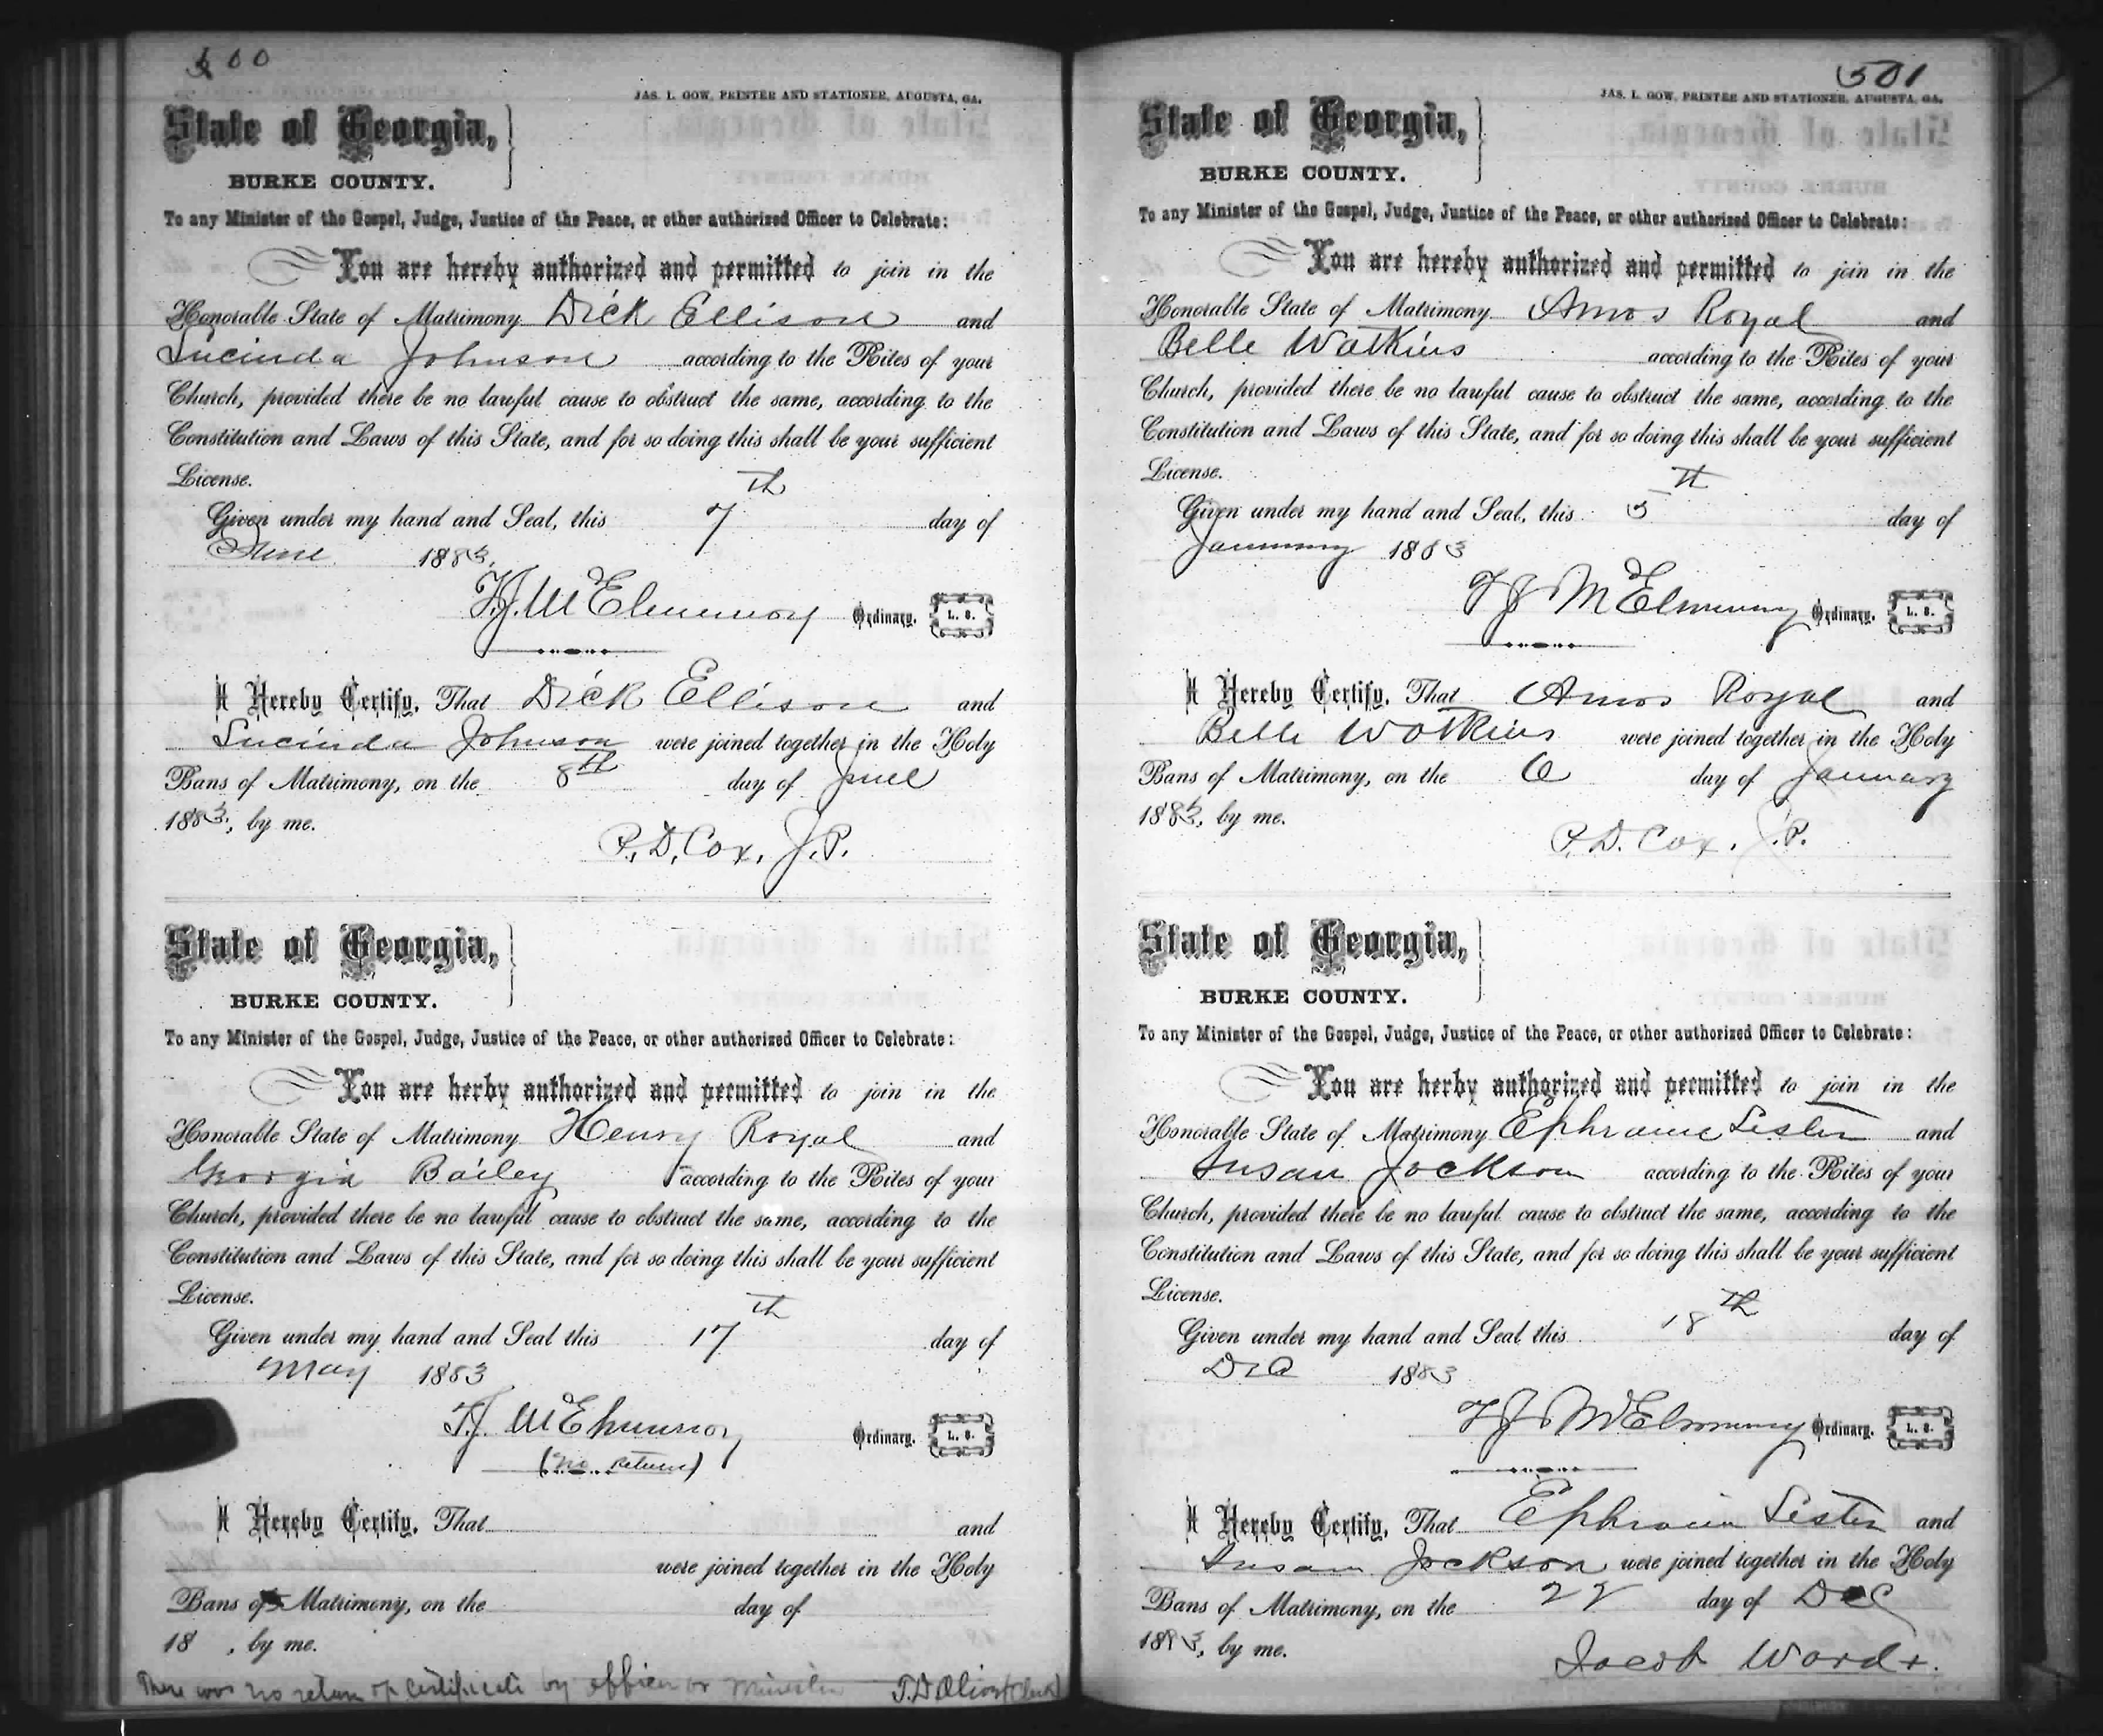 500
JAS. L. GOW, PRINTER AND STATIONER, AUGUSTA, GA.
State of Georgia,
BURKE COUNTY.
To any Minister of the Gospel, Judge, Justice of the Peace, or other authorized Officer to Celebrate:
You are hereby authorized and permitted to join in the
Honorable State of Matrimony Dick Ellison and
Lucinda Johnson according to the Rites of your
Church, provided there be no lawful cause to obstruct the same, according to the
Constitution and Laws of this State, and for so doing this shall be your sufficient
License.
Given under my hand and Seal, this 7th day of
June 1883.
T.J. McElmurray Ordinary. L. S.
I Hereby Certify, That Dick Ellison and
Lucinda Johnson were joined together in the Holy
Bans of Matrimony, on the 8th day of June
1883, by me.
P. D. Cox, J. P.
State of Georgia,
BURKE COUNTY.
To any Minister of the Gospel, Judge, Justice of the Peace, or other authorized Officer to Celebrate:
You are herby authorized and permitted to join in the
Honorable State of Matrimony Henry Royal and
Georgia Bailey according to the Rites of your
Church, provided there be no lawful cause to obstruct the same, according to the
Constitution and Laws of this State, and for so doing this shall be your sufficient
License.
Given under my hand and Seal this 17th day of
May 1883
T.J. McElmurray Ordinary. L. S.
(no return)
I Hereby Certify, That and
were joined together in the Holy
Bans of Matrimony, on the day of
18 , by me.
There was no return of certificate by officer or minister T.D. (Clerk)
501
JAS. L. GOW, PRINTER AND STATIONER, AUGUSTA, GA.
State of Georgia,
BURKE COUNTY.
To any Minister of the Gospel, Judge, Justice of the Peace, or other authorized Officer to Celebrate:
You are hereby authorized and permitted to join in the
Honorable State of Matrimony Amos Royal and
Belle Watkins according to the Rites of your
Church, provided there be no lawful cause to obstruct the same, according to the
Constitution and Laws of this State, and for so doing this shall be your sufficient
License.
Given under my hand and Seal, this 5th day of
January 1883
T J McElmurray Ordinary. L. S.
I Hereby Certify, That Amos Royal and
Belle Watkins were joined together in the Holy
Bans of Matrimony, on the 6 day of January
1883, by me.
P. D. Cox, J. P.
State of Georgia,
BURKE COUNTY.
To any Minister of the Gospel, Judge, Justice of the Peace, or other authorized Officer to Celebrate:
You are herby authorized and permitted to join in the
Honorable State of Matrimony Ephraim Lester and
Susan Jackson according to the Rites of your
Church, provided there be no lawful cause to obstruct the same, according to the
Constitution and Laws of this State, and for so doing this shall be your sufficient
License.
Given under my hand and Seal this 18th day of
Dec 1883
T J McElmurray Ordinary. L. S.
I Hereby Certify, That Ephraim Lester and
Susan Jackson were joined together in the Holy
Bans of Matrimony, on the 22 day of Dec
1883, by me.
Jacob Ward